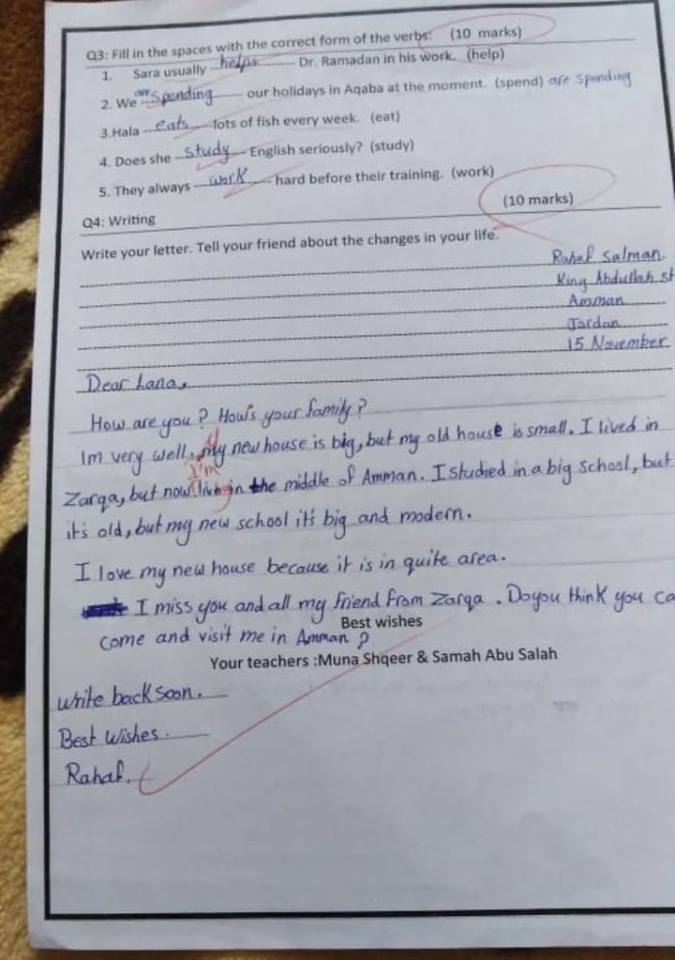 Q3: Fill in the spaces with the correct form of the verbs: (10 marks)
1. Sara usually helps Dr. Ramadan in his work. (help)
2. We are spending our holidays in Aqaba at the moment. (spend) are spending
3.Hala eats lots of fish every week. (eat)
4. Does she study English seriously? (study)
5. They always work hard before their training. (work)
(10 marks)
Q4: Writing
Write your letter. Tell your friend about the changes in your life.
Rahaf Salman.
King Abdullah st
Amman
Jordan
15 November
Dear Lana,
How are you? How's your family?
Im very well. My new house is big, but my old house is small. I lived in
I'm
Zarqa, but now living in the middle of Amman. I studied in a big school, but
it's old, but my new school it's big and modern.
I love my new house because it is in quite area.
I miss you and all my friend from Zarqa. Do you think you ca
Best wishes
come and visit me in Amman?
Your teachers :Muna Shqeer & Samah Abu Salah
write back soon.
Best Wishes.
Rahaf.